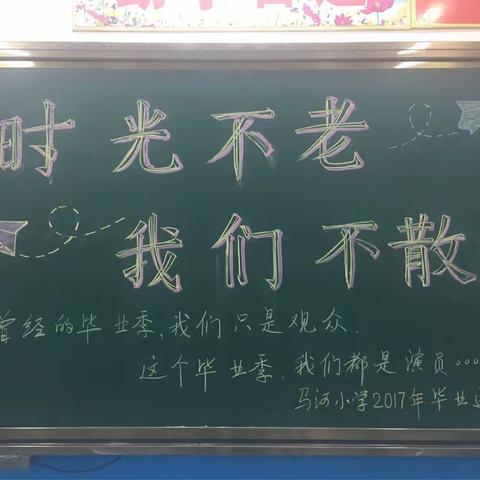 时光不老
我们不散
曾经的毕业季,我们只是观众.
这个毕业季,我们都是演员……
马河小学2017年毕业